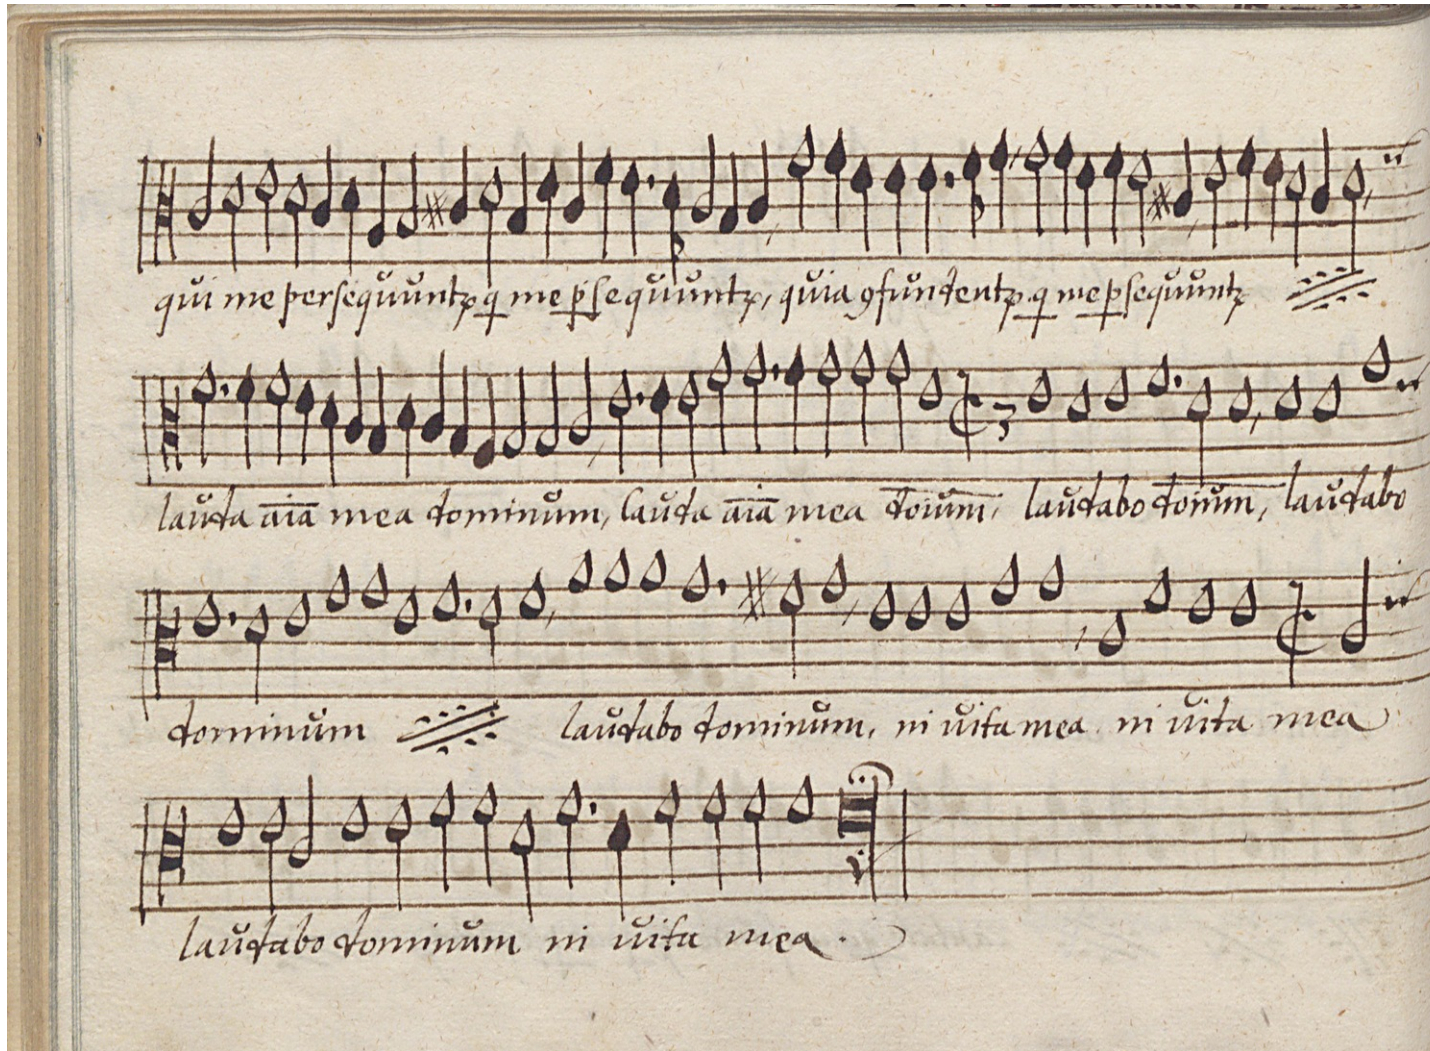 qui me persequuntꝛ q̄ me p̱sequuntꝛ, quia ꝯfundentꝛ q̄ me p̱sequuntꝛ
lauda aīā mea dominum, lauda aīā mea doīum, laudabo doīnum, laudabo
dominum laudabo dominum, ni uita mea ni uita mea
laudabo dominum ni uita mea .